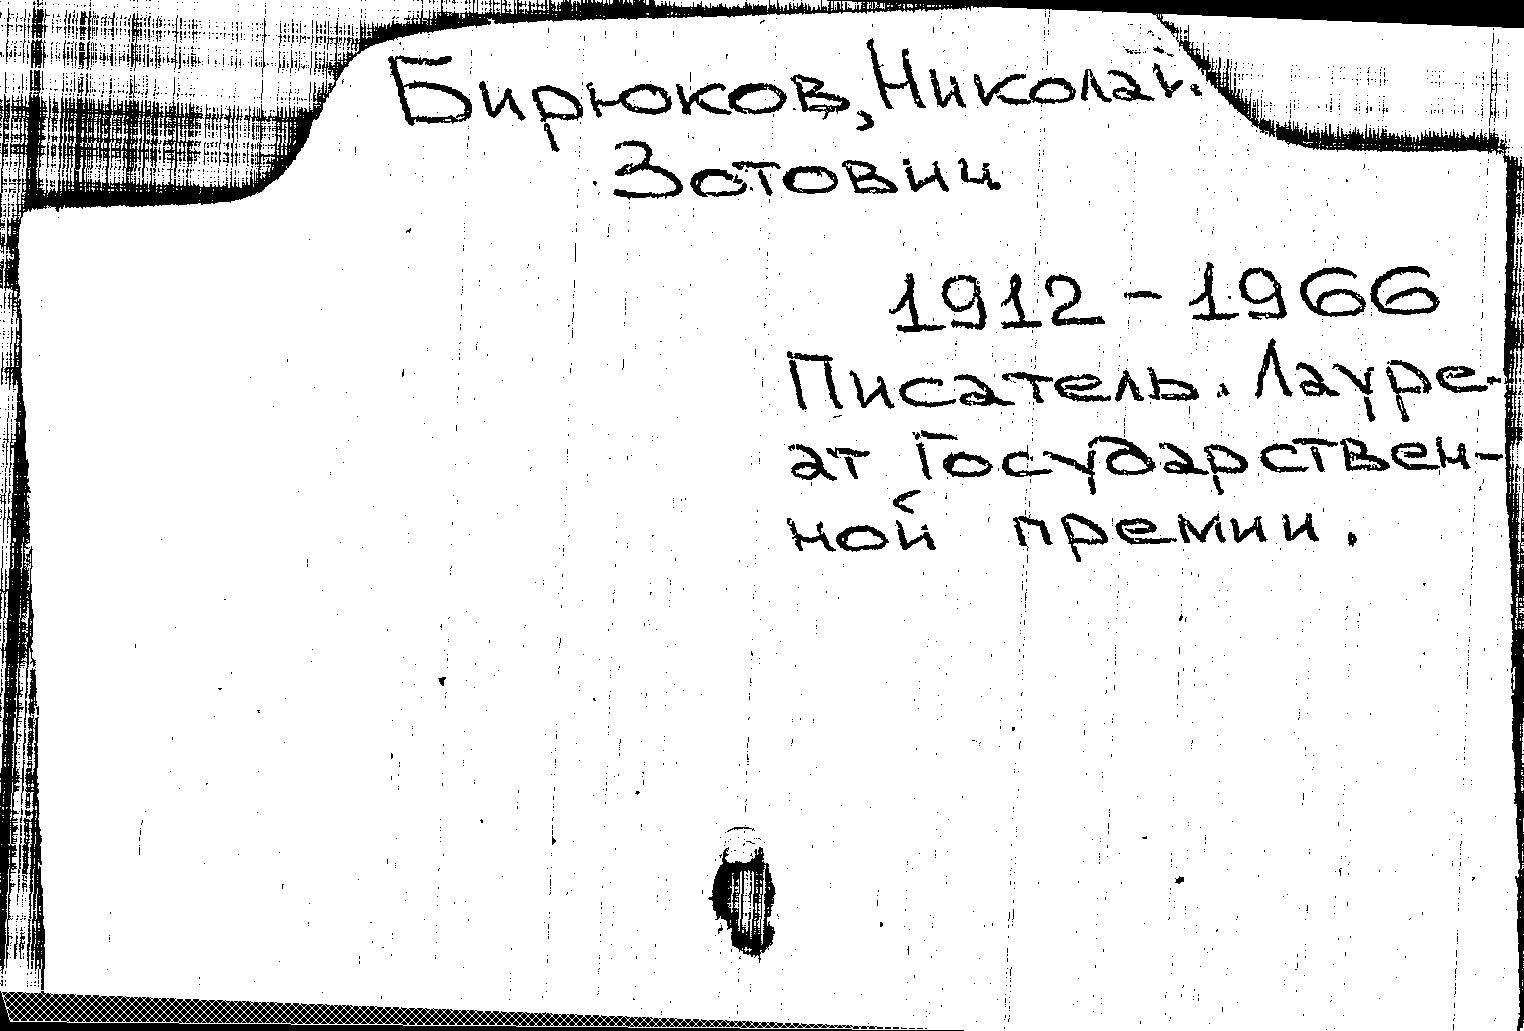 Бирюков, Николай
Зотович
1912 - 1966
Писатель. Лауре-
ат Государствен-
ной премии.